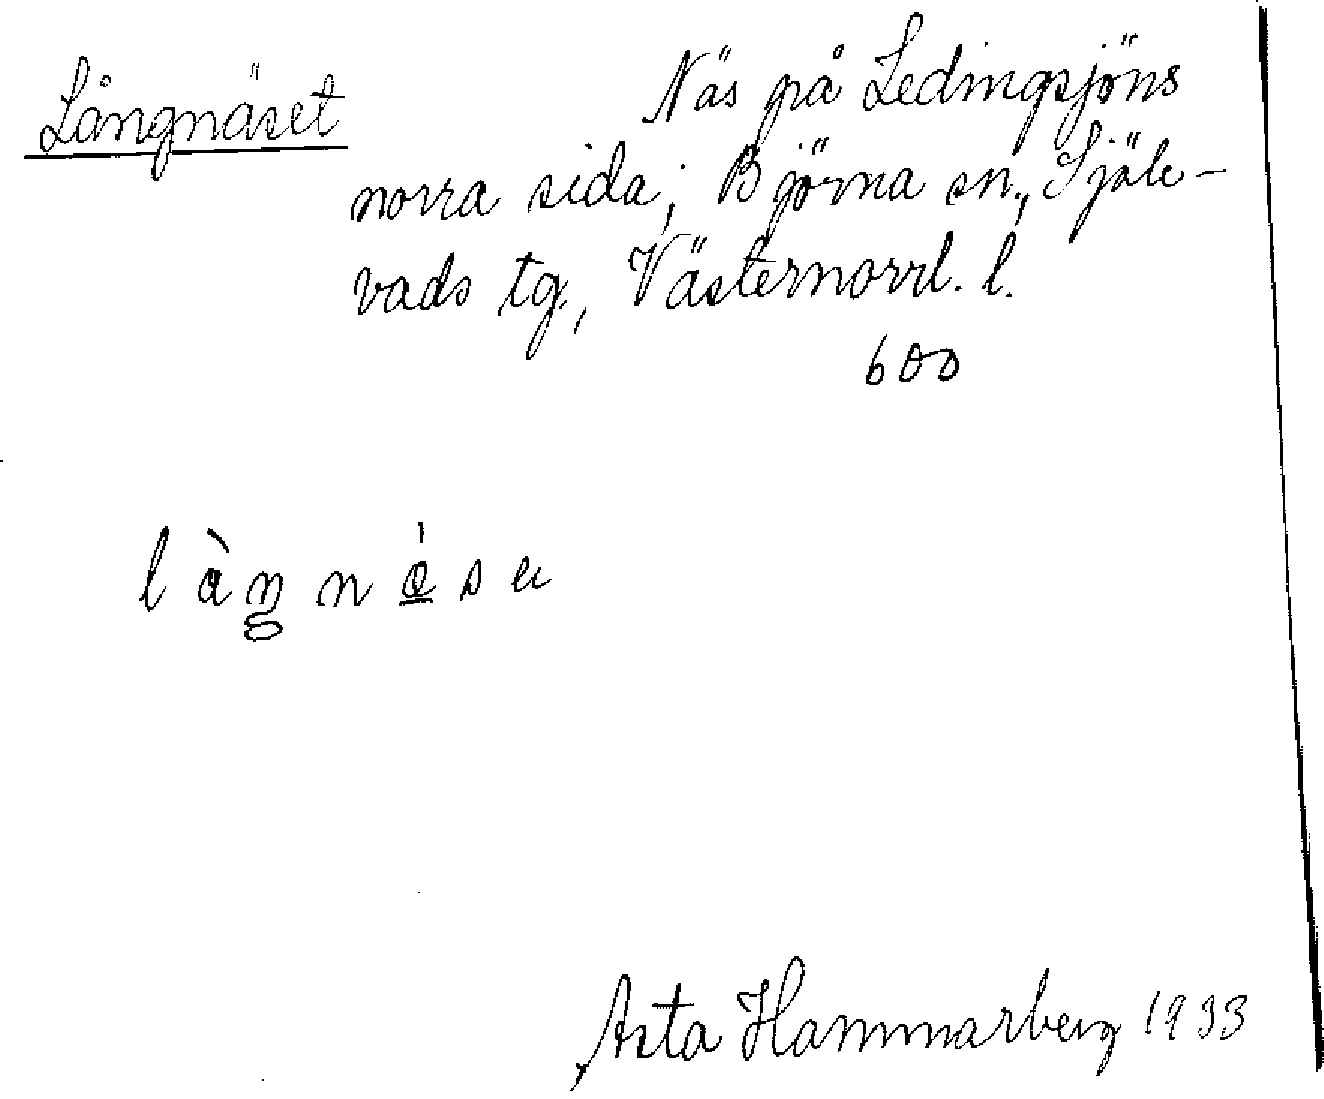 Långnäset
Näs på Ledingsjöns
norra sida; Björna sn., Själe-
vads tg, Västernorrl. l.
600
Asta Hammarberg 1933